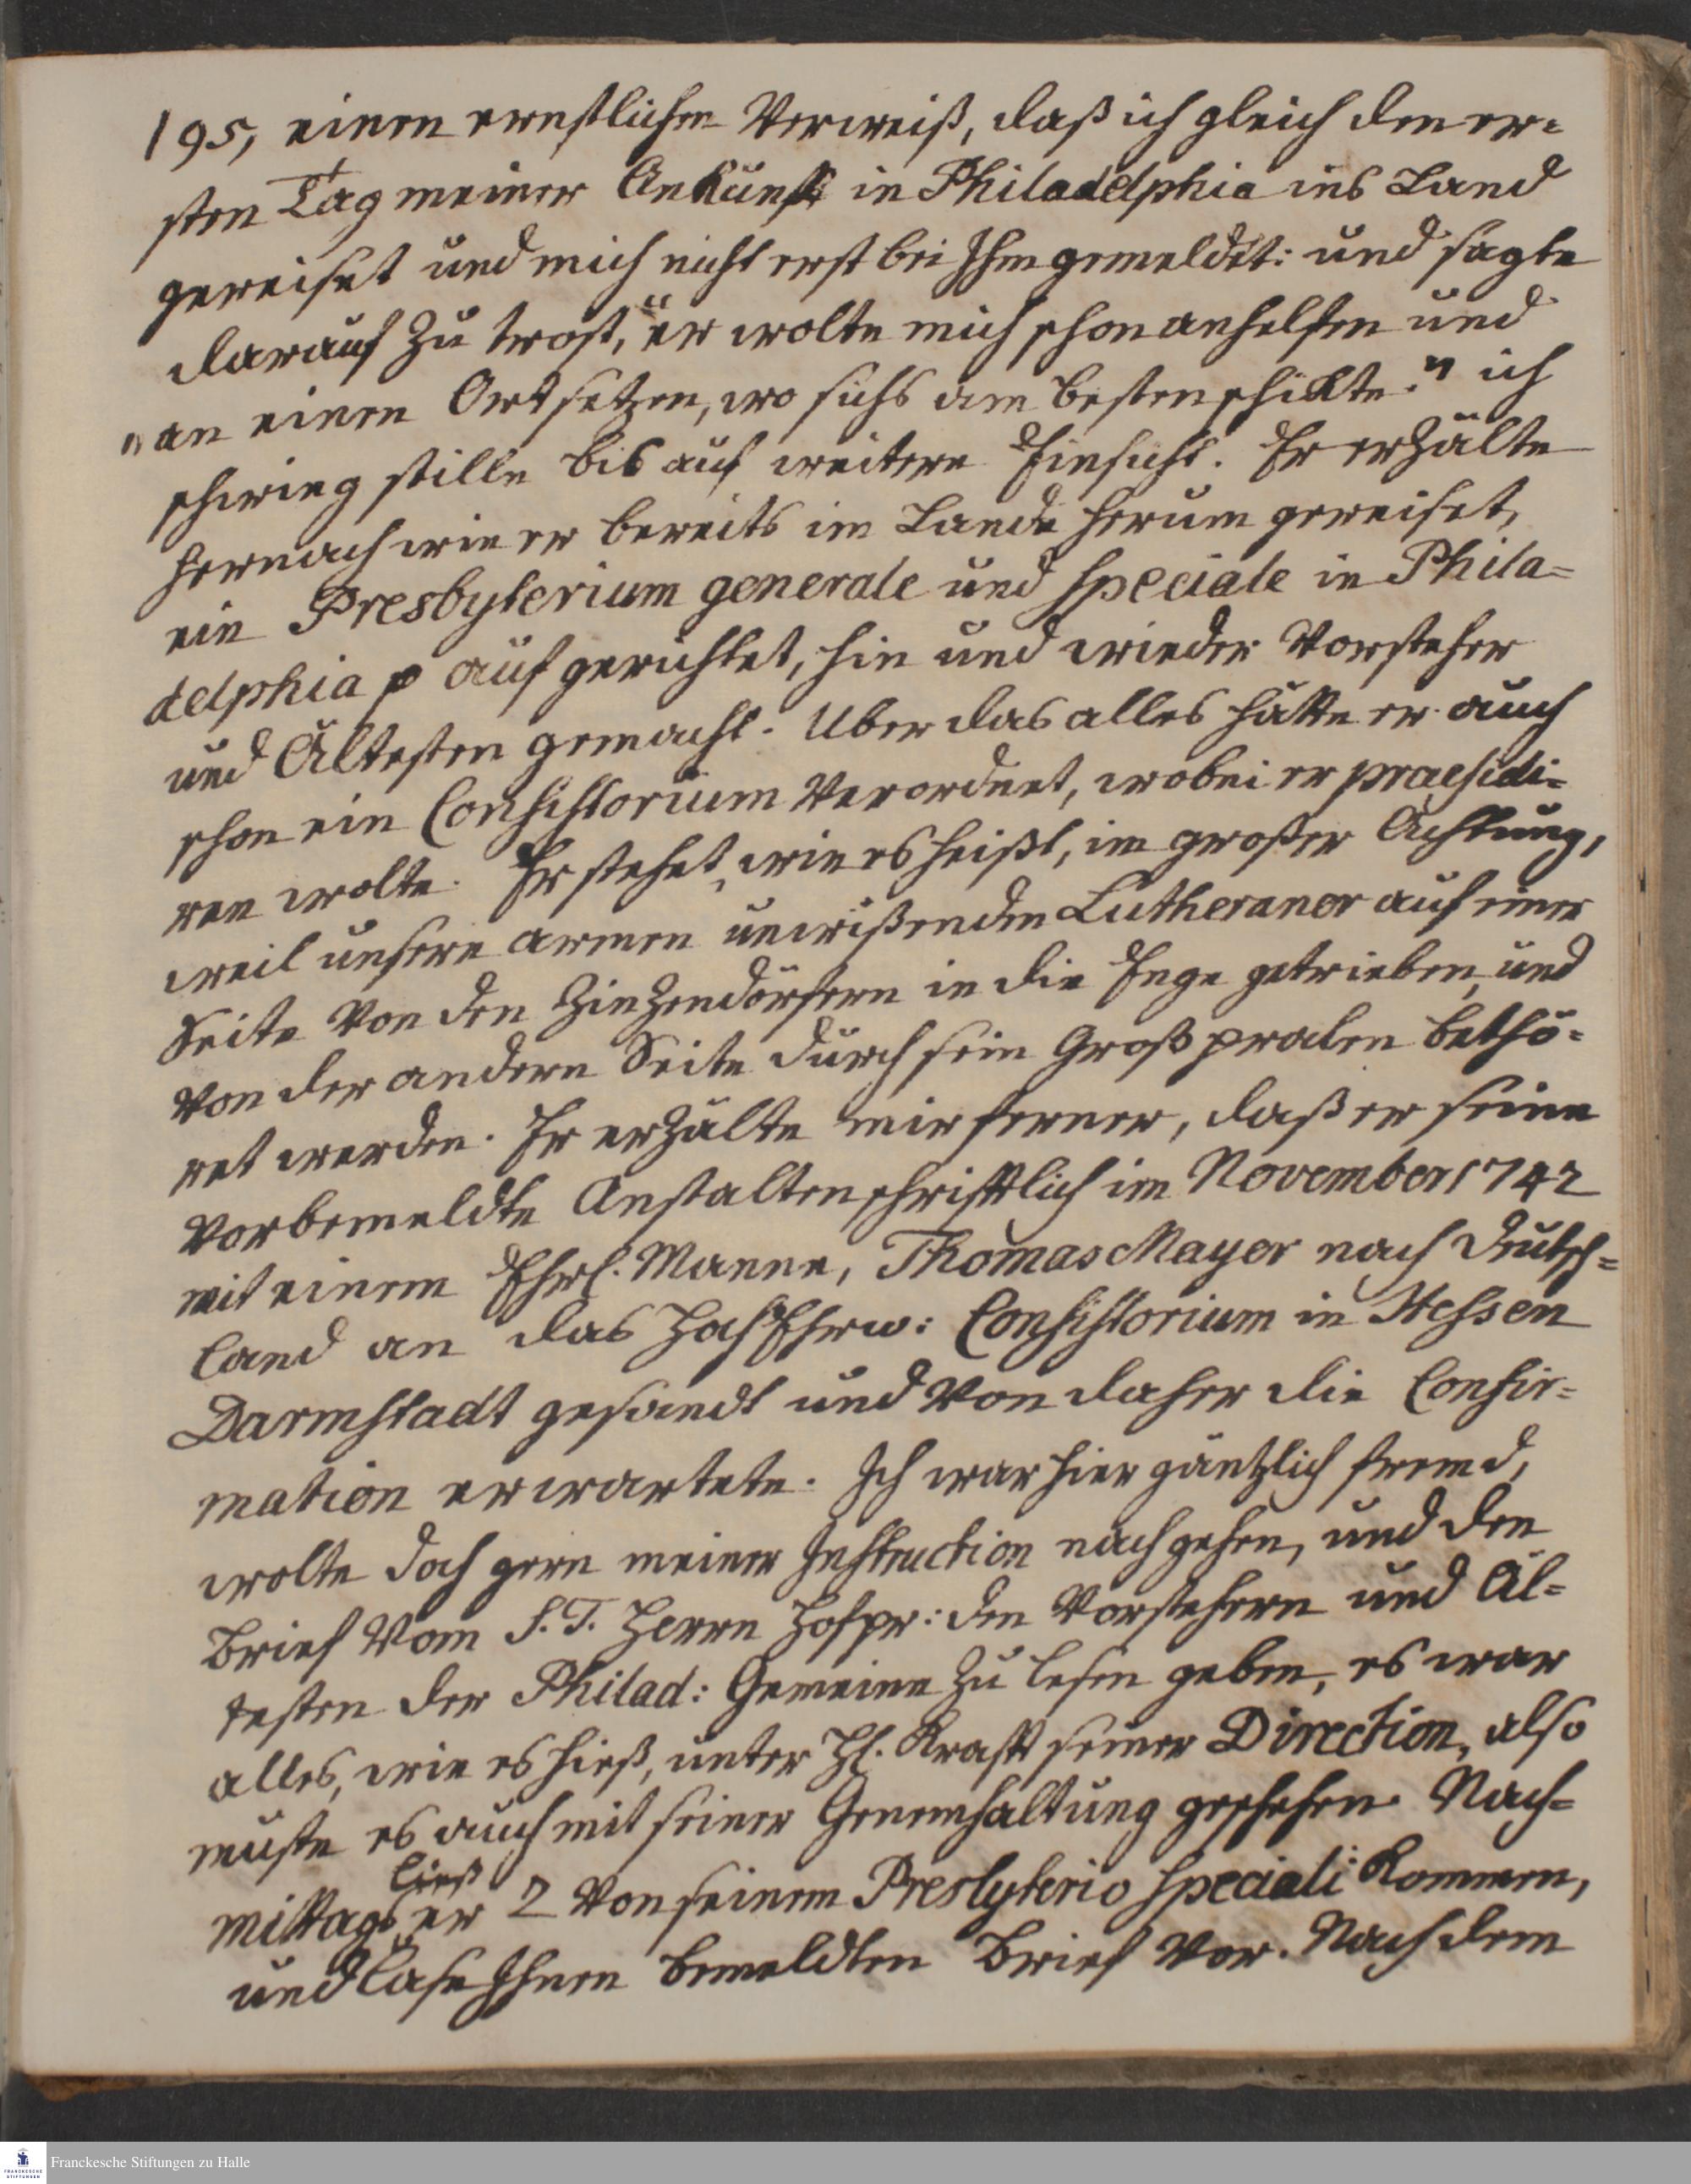 195, einen ernstlichen Verweiß, daß ich gleich den er-
sten Tag meiner Ankunft in Philadelphia ins Land
gereiset und mich nicht erst bei Ihm gemeldet: und sagte
darauf zu trost, "er wolte mich schon anhelfen und
"an einen Ort setzen, wo sichs am besten schikte." ich
schwieg stille bis auf weitere Einsicht. Er erzälte
hernach wie er bereits im Lande herum gereiset,
ein Presbyterium generale und speciale in Phila=
delphia p aufgerichtet, hin und wieder Vorsteher
und Ältesten gemacht. Uber das alles hätte er auch
schon ein Consistorium verordnet, wobei er praesidi=
ren wolte. Er stehet, wie es heißt, in großer Achtung,
weil unsere armen unwißenden Lutheraner auf einer
Seite von den Zinzendörfern in die Enge getrieben, und
von der andern Seite durch sein Großpralen bethö-
ret werden. Er erzälte mir ferner, daß er seine
vorbemeldte Anstalten schrifftlich im November 1742
mit einem Ehrl. Manne, Thomas Mayer nach Deutsch=
land an das HochEhrw: Consistorium in Hessen
Darmstadt gesandt und von daher die Confir=
mation erwartete. Ich war hier gäntzlich fremd,
wolte doch gern meiner Instruction nachgehen, und den
Brief vom S. T. Herrn Hofpr: den Vorstehern und Äl=
testen der Philad: Gemeine zu lesen geben, es war
alles, wie es hieß, unter H. Krafft seiner Direction, also
muste es auch mit seiner Genemhaltung geschehen. Nach=
mittags ließ er 2 von seinem Presbyterio speciali kommen,
und läse Ihnen bemeldten Brief vor. Nach dem
Franckesche Stiftungen zu Halle